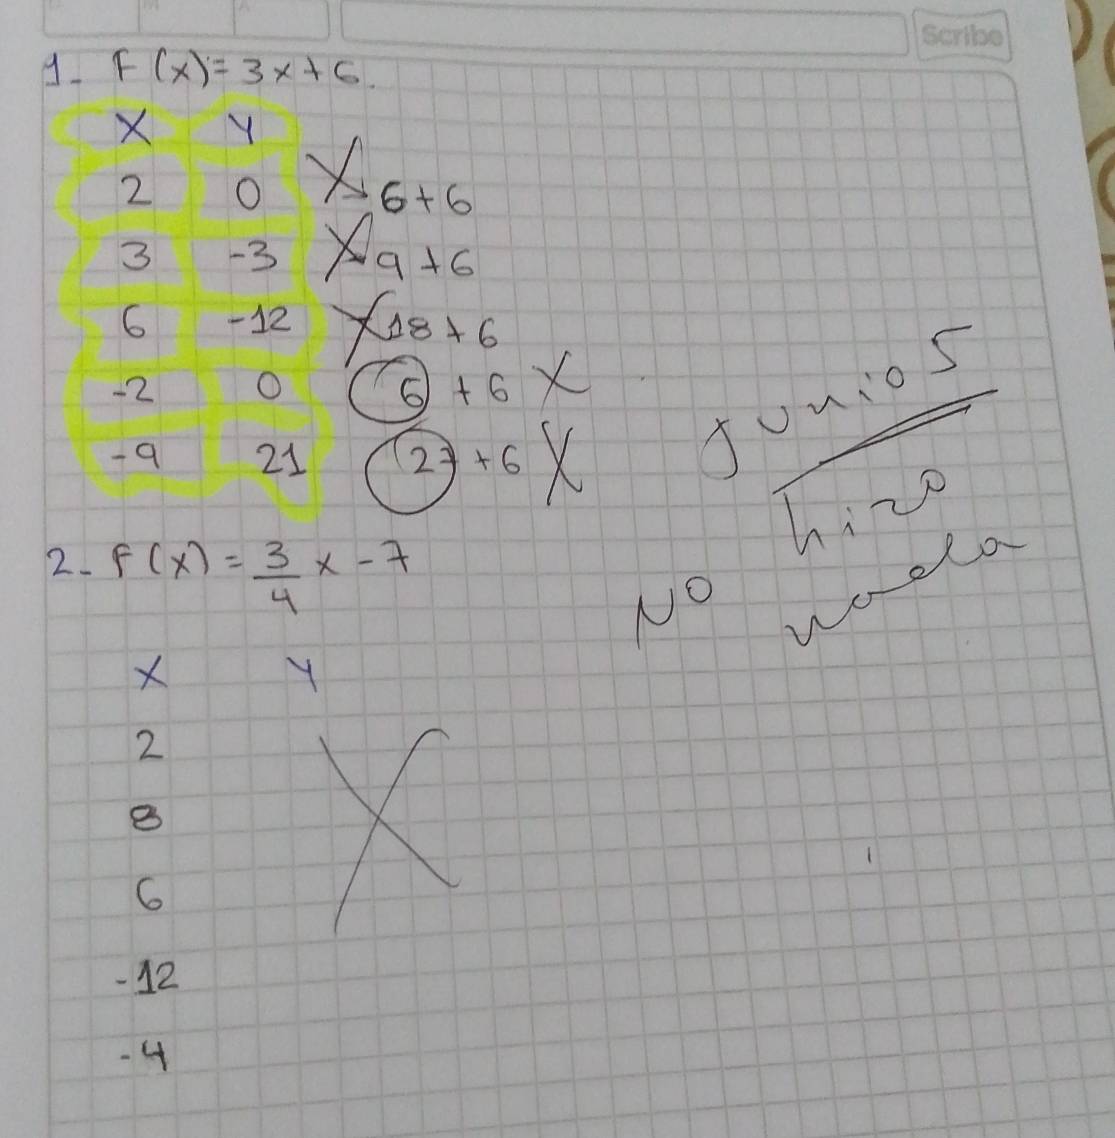 Scribe
1- F(x)=3x+6.
X Y
2 0 -6+6
3 -3 9+6
6 -12 -18+6
-2 0 6+6 X
-9 21 27+6 X
Junio 5
hizo
NO nada
2- F(x) = 3/4 x - 7
X Y
2
8
6
-12
-4